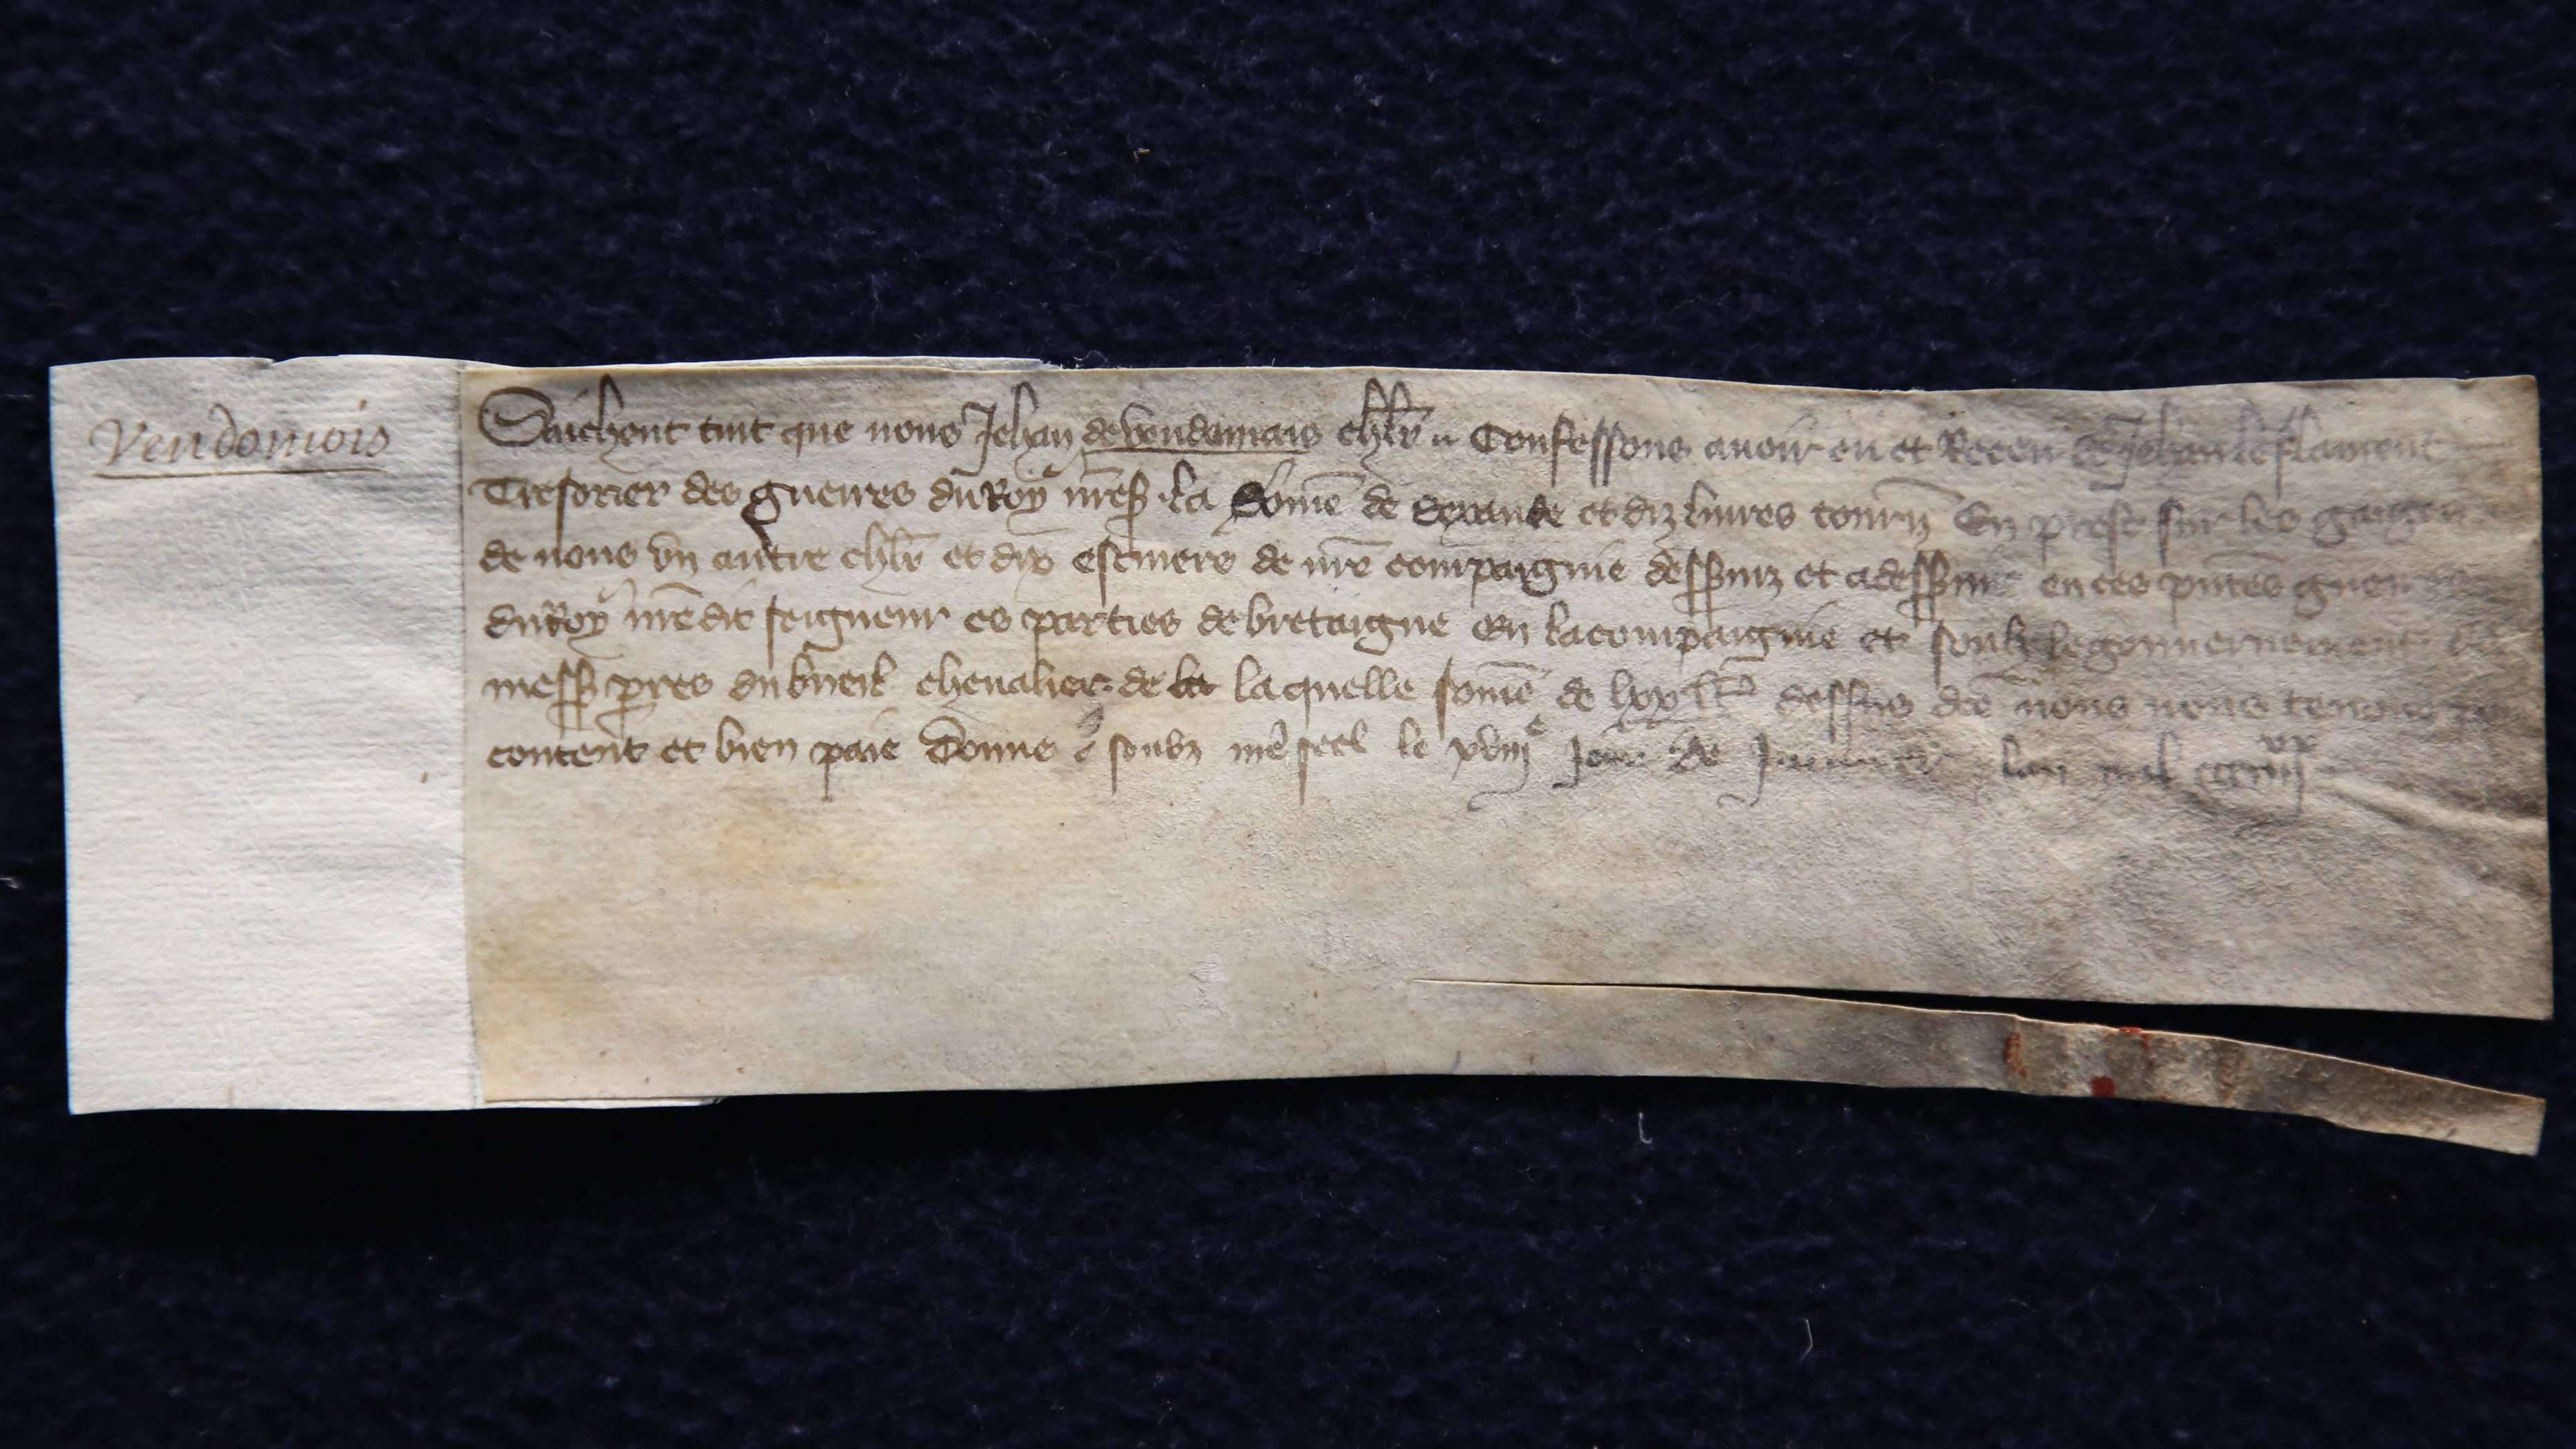 Vendomois
Saichent tuit que nous Jehan de vendomais chlr Confessons avoir eu et Receu de Jehan le flament
Tresorier des guerres du Roy nres la Some de et diz livres tourn En prest sur les gaiges
de nous un autre chlr et dix escuiers de nre compaignie desserviz et a desservir en ces pntes guerres
du Roy nre dit seigneur es parties de bretaigne En la compaignie et soubz le gouvernement de
mess pres du bueil chevalier de la quelle some de dessus dce nous nous tenons
content et bien paie Donne soubz nre seel le xviiie Jour de lan mil ccciiiixx